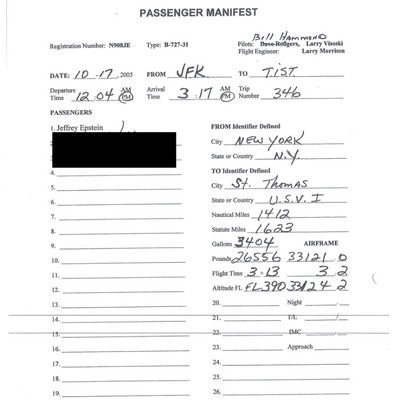 PASSENGER MANIFEST
Bill Hammond
Registration Number: N908JE Type: B-727-31 Pilots: Dave Rodgers, Larry Visoski
Flight Engineer: Larry Morrison
DATE: 10.17.2005 FROM JFK TO TIST
Departure Time 12:04 AM PM Arrival Time 3:17 AM PM Trip Number 346
PASSENGERS
1. Jeffrey Epstein
FROM Identifier Defined
City NEW YORK
State or Country N.Y.
4.
TO Identifier Defined
5.
City St. Thomas
6.
State or Country U.S.V.I
7.
Nautical Miles 1412
8.
Statute Miles 1623
9.
Gallons 3404 AIRFRAME
10.
Pounds 26556 33121 0
11.
Flight Time 3:13 3 2
12.
Altitude FL FL390 33124 2
13.
20. Night
14.
21. I/L
15.
22. IMC
16.
23. Approach
17.
24.
18.
25.
19.
26.